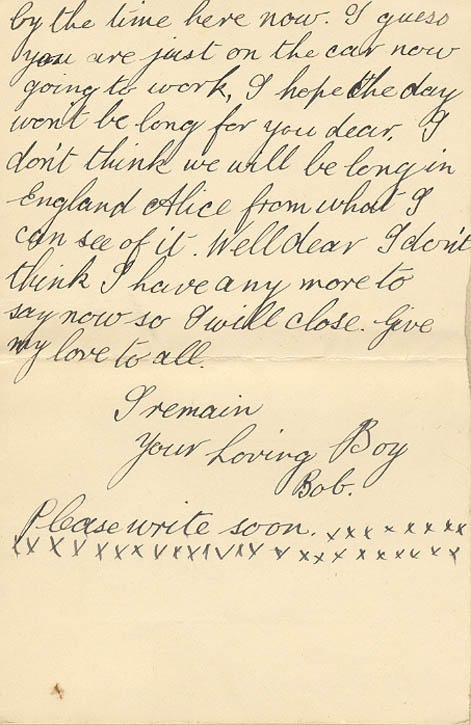 by the time here now. I guess
you are just on the car now
going to work, I hope the day
wont be long for you dear. I
don't think we will be long in
England Alice from what I
can see of it. Well dear I don't
think I have any more to
say now so I will close. Give
my love to all.
I remain
Your Loving Boy
Bob.
Please write soon. xxx xxxxxx
xxxxxxxxxxxxxxxxxxxxxxxx